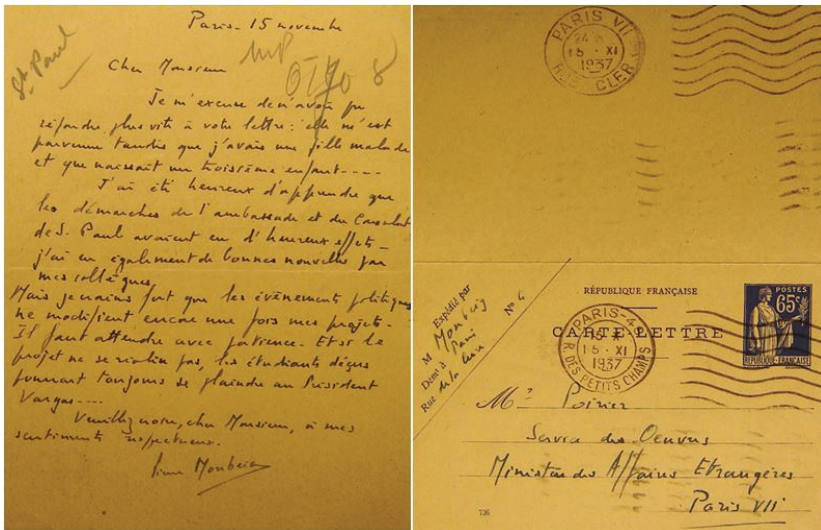 Paris - 15 novembre
St Paul
Cher Monsieur
Je m'excuse de n'avoir pu
répondre plus vite à votre lettre : elle m'est
parvenue tandis que j'avais une fille malade
et que naissait un troisième enfant----
J'ai été heureux d'apprendre que
les démarches de l'ambassade et du Consulat
de S. Paul avaient eu d'heureux effets -
j'ai eu également de bonnes nouvelles par
mes collègues.
Mais je crains fort que les évènements politiques
ne modifient encore une fois mes projets.
Il faut attendre avec patience. Et si le
projet ne se réalise pas, les étudiants déçus
pourront toujours se plaindre au Président
Vargas----
Veuillez croire, cher Monsieur, à mes
sentiments respectueux.
Pierre Monbeig
PARIS VII
15 · XI
1937
RUE CLER
RÉPUBLIQUE FRANÇAISE
CARTE-LETTRE
POSTES
65c
RÉPUBLIQUE-FRANÇAISE
Expédié par
M Monbeig
Demt à Paris
Rue de la
No 4
PARIS-4
15 · XI
1937
R. DES PETITS CHAMPS
Mr Poirier
Service des Oeuvres
Ministère des Affaires Etrangères
Paris VII